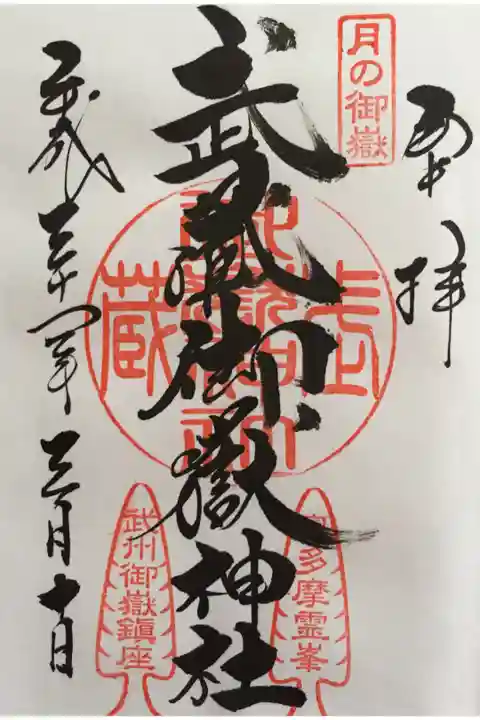 奉拝
月の御嶽
武蔵御嶽神社
奥多摩霊峯
武州御嶽鎮座
平成三十一年三月十日